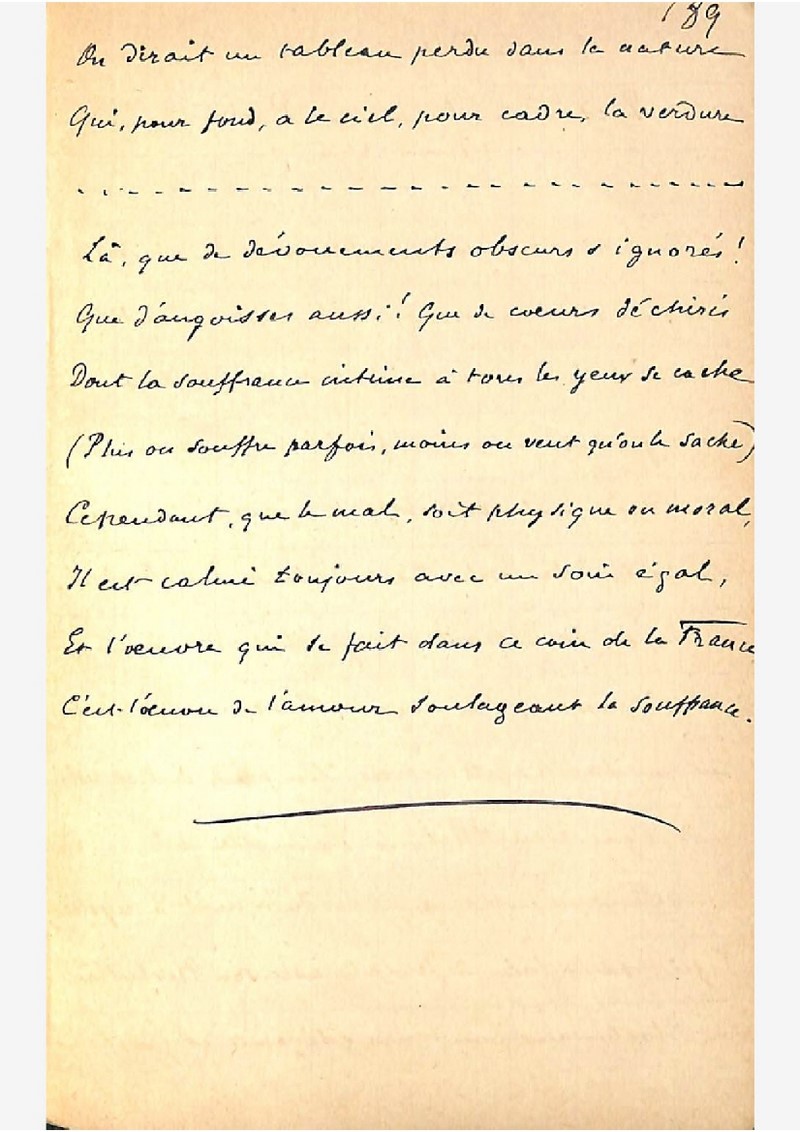 189
On dirait un tableau perdu dans la nature
Qui, pour fond, a le ciel, pour cadre, la verdure
Là, que de dévouements obscurs & ignorés !
Que d'angoisses aussi ! Que de coeurs déchirés
Dont la souffrance intime à tous les yeux se cache
(Plus on souffre parfois, moins on veut qu'on le sache)
Cependant, que le mal, soit physique ou moral,
Il est calmé toujours avec un soin égal,
Et l'oeuvre qui se fait dans ce coin de la France
C'est l'oeuvre de l'amour soulageant la souffrance.